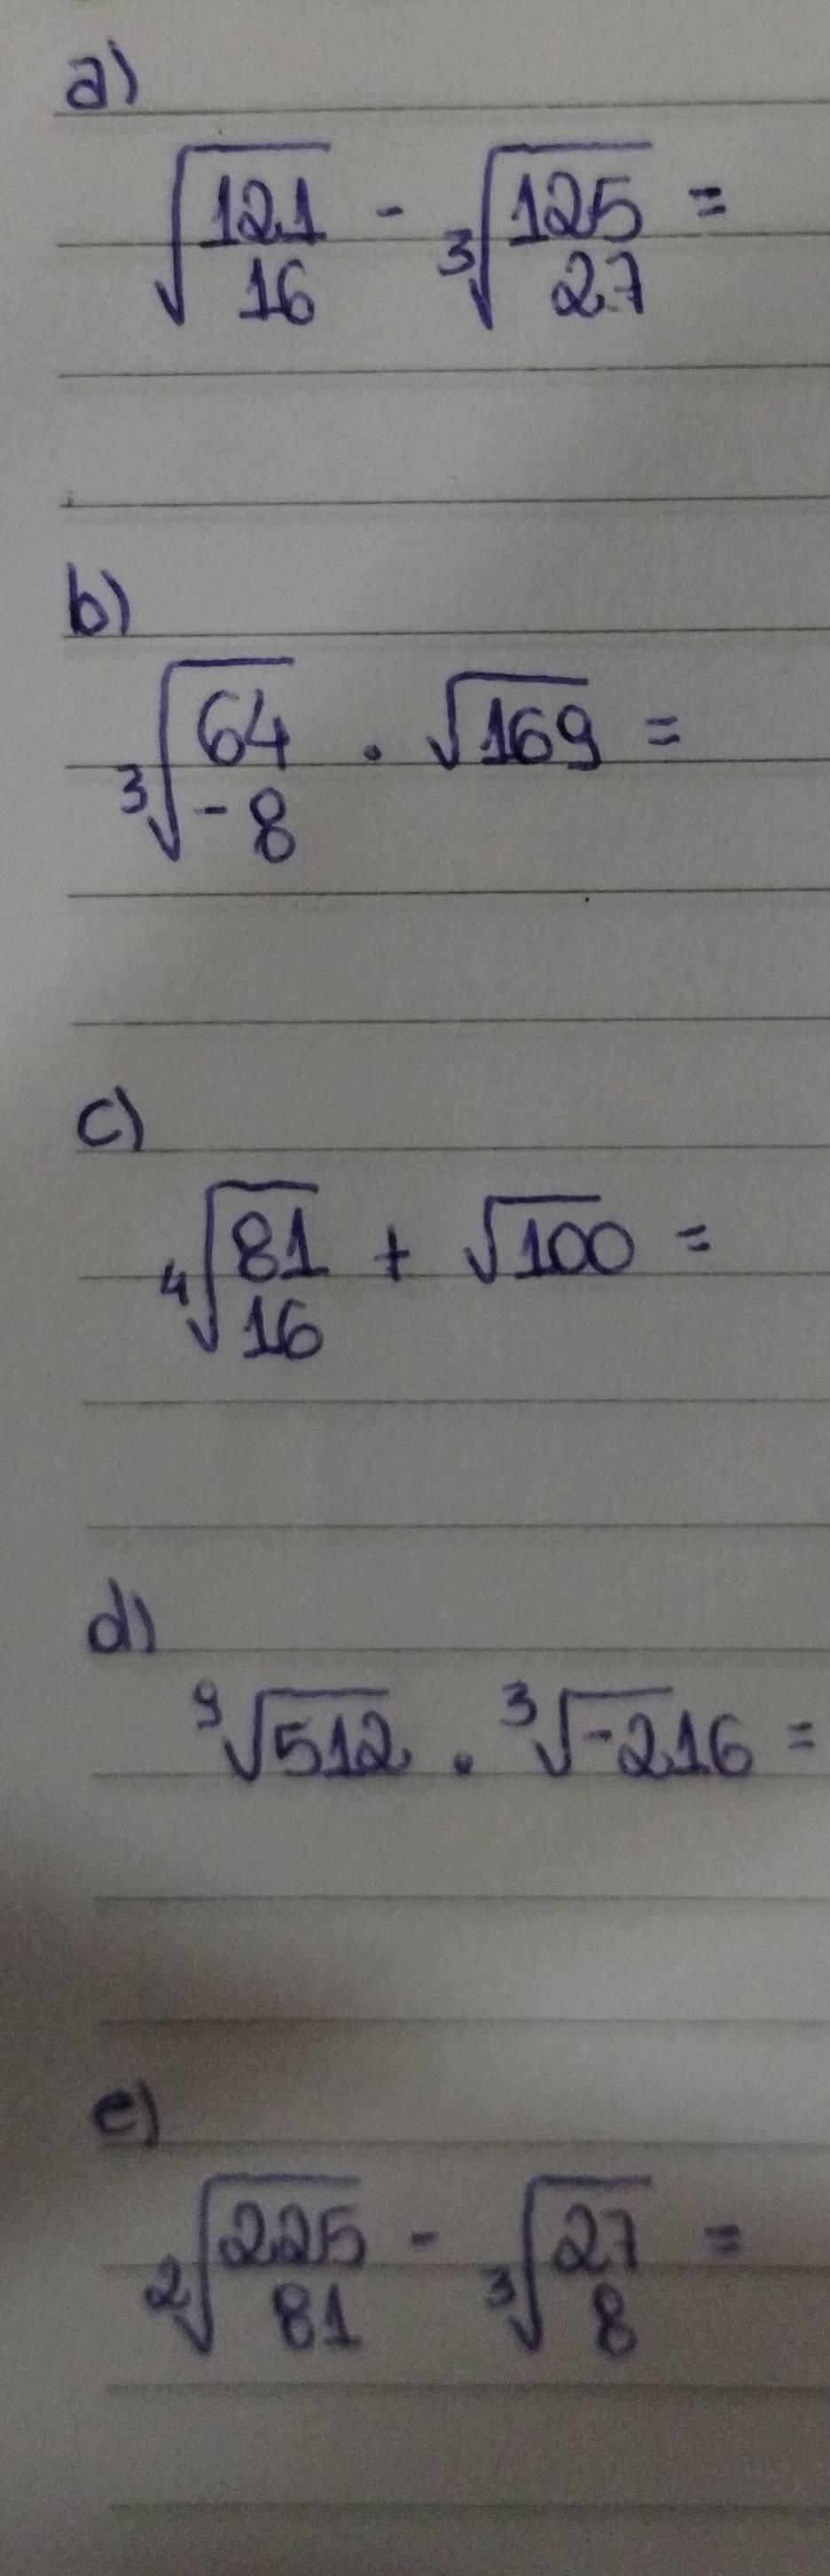 a)
√(121/16) - ³√(125/27) =
b)
³√(64/-8) . √169 =
c)
⁴√(81/16) + √100 =
d)
⁹√512 . ³√-216 =
e)
²√(225/81) - ³√(27/8) =